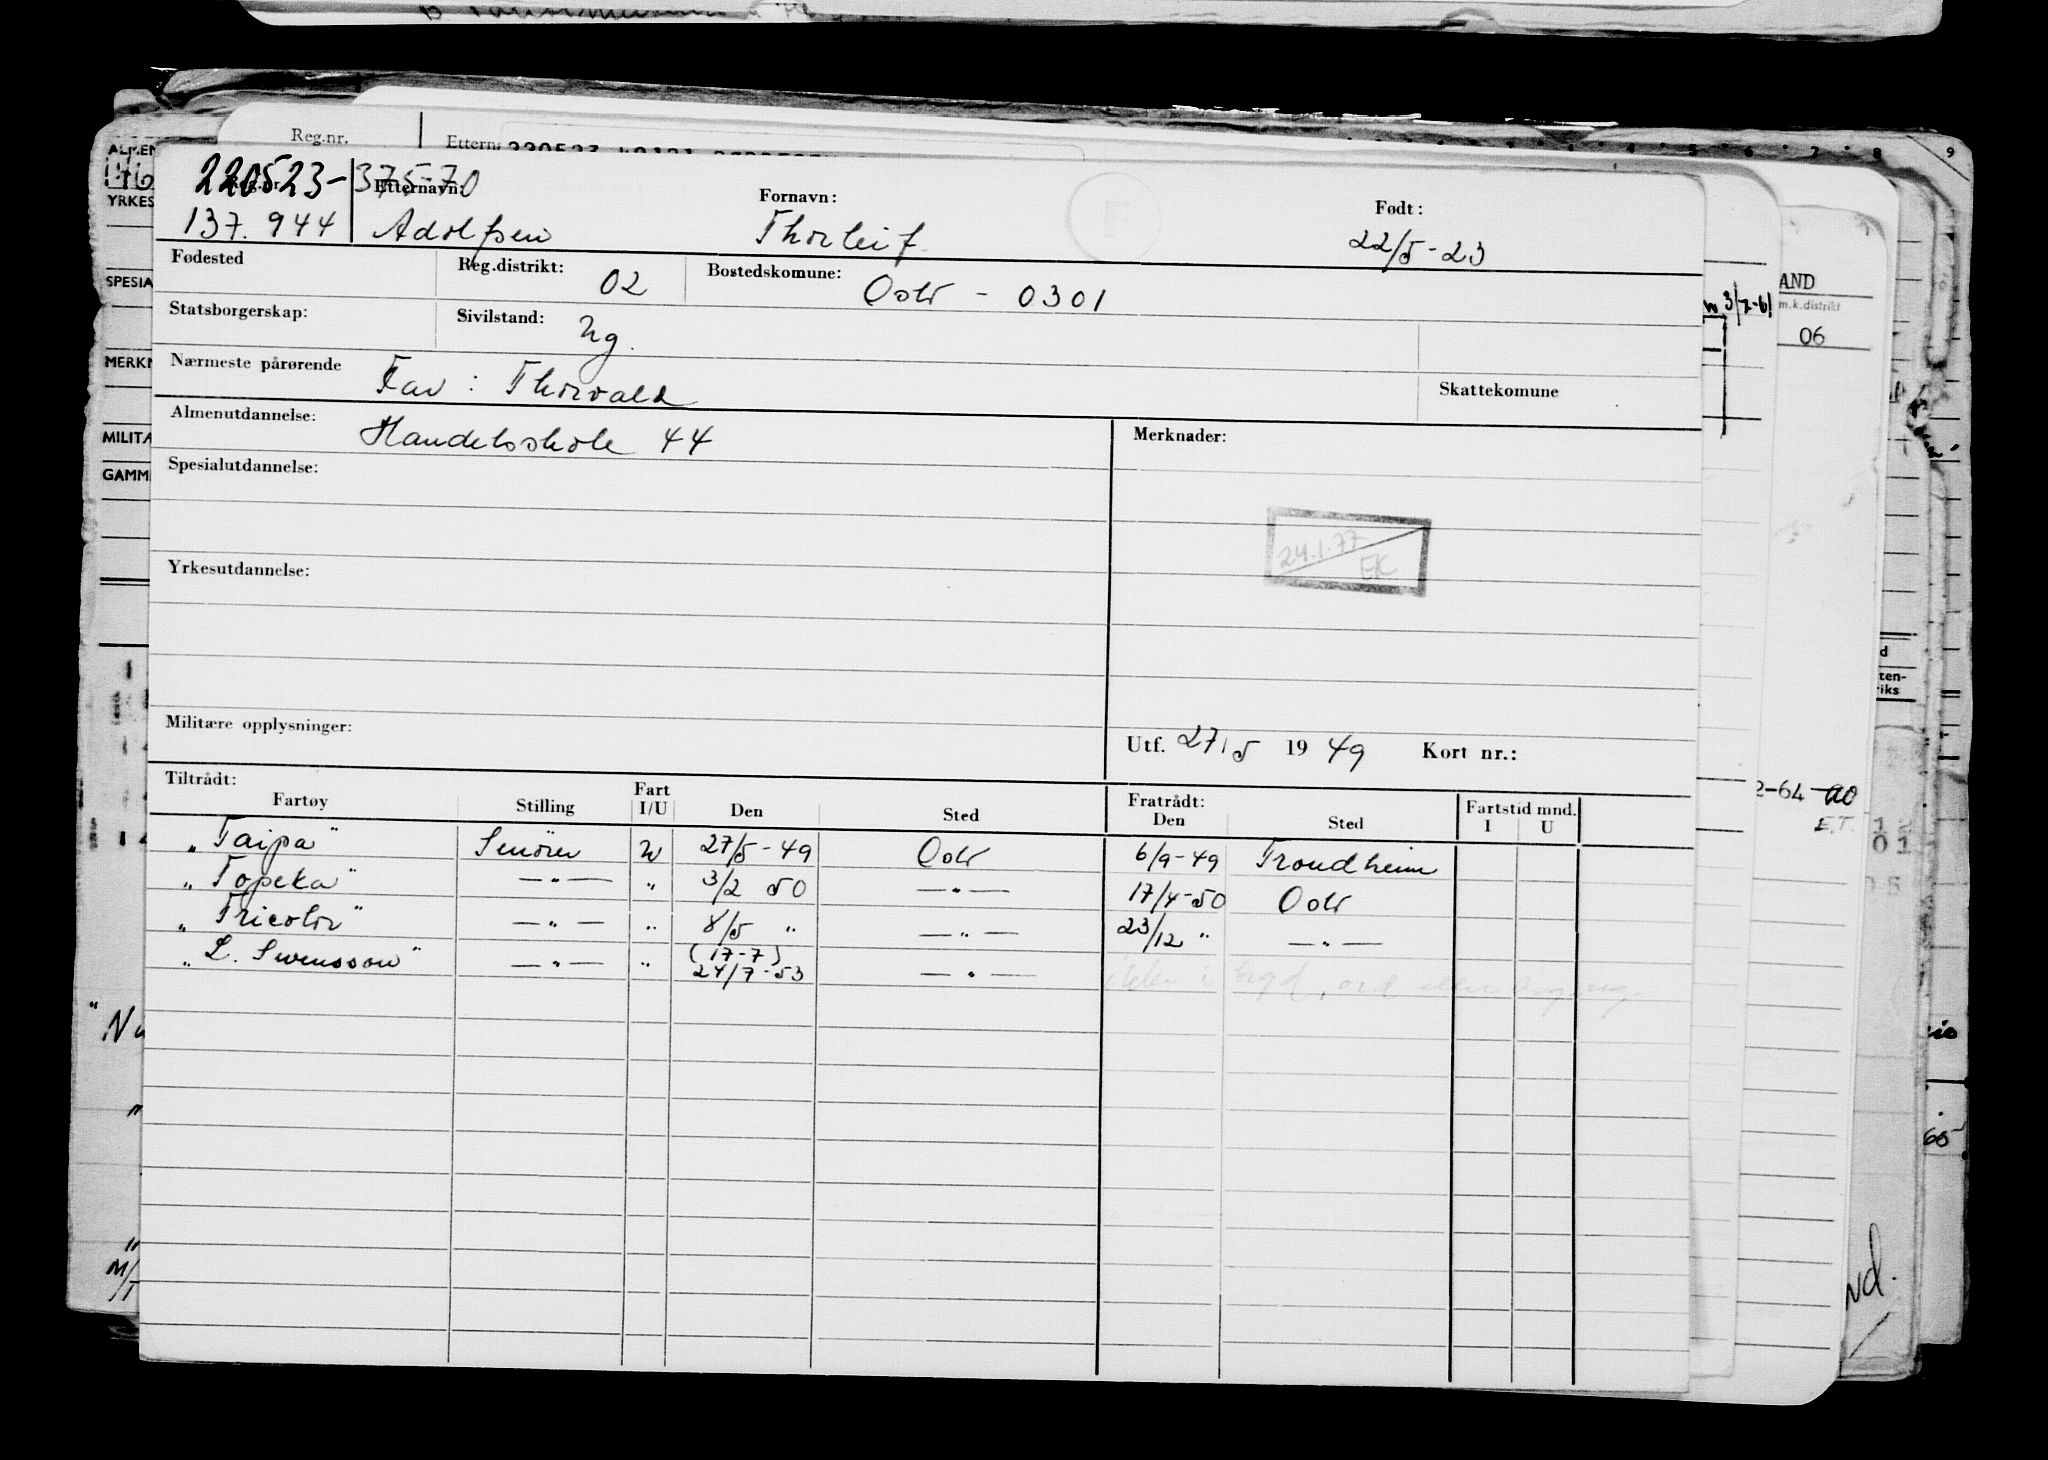 Reg.nr. Ettern
220523-37570 Etternavn: Fornavn: Født:
137.944 Adolfsen Thorleif 22/5-23
Fødested Reg.distrikt: 02 Bostedskomune: Oslo - 0301
Statsborgerskap: Sivilstand: Ug.
Nærmeste pårørende Far: Thorvald Skattekomune
Almenutdannelse: Handelsskole 44 Merknader:
Spesialutdannelse:
24.1.77 EK
Yrkesutdannelse:
Militære opplysninger: Utf. 27/5 1949 Kort nr.:
Tiltrådt: Fratrådt:
Fartøy Stilling Fart I/U Den Sted Den Sted Fartstid mnd. I U
"Taipa" Smører U 27/5-49 Oslo 6/9-49 Trondheim
"Topeka" —"— " 3/2 50 —"— 17/4-50 Oslo
"Tricolor" —"— " 8/5 " —"— 23/12 " —"—
"L. Swensson" —"— " (17-7) 24/7-53 —"—
ALMEN
YRKES
SPESIA
MERKN
MILITÆ
GAMM
AND
m.k.distrikt
06
2-64
E.T.